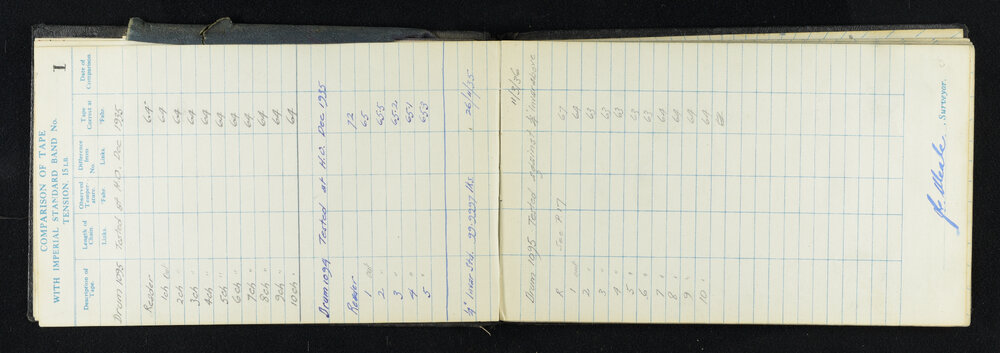 1
COMPARISON OF TAPE
WITH IMPERIAL STANDARD BAND No.
TENSION, 15 LB.
Description of Tape. Length of Chain Links. Observed Temperature. °Fahr. Difference from No. Links. Tape Correct at °Fahr. Date of Comparison
Drum 1095 Tested at H.O. Dec 1935
Reader 64°
1ch Out 64
2ch " 64
3ch " 64
4ch " 64
5ch " 64
6ch " 64
7ch " 64
8ch " 64
9ch " 64
10ch " 64
Drum 1094 Tested at H.O. Dec 1935
Reader 72
1 out 65
2 " 65.5
3 " 65.2
4 " 65.1
5 " 65.3
¼" Invar Std. 29.2227 lks. 26/4/35
11/3/36
Drum 1095 Tested against
R See P 17 63
1 out 64
2 " 63
3 " 63
4 " 63
5 " 63
6 " 63
7 " 64
8 " 64
9 " 64
10 " 64
, Surveyor.